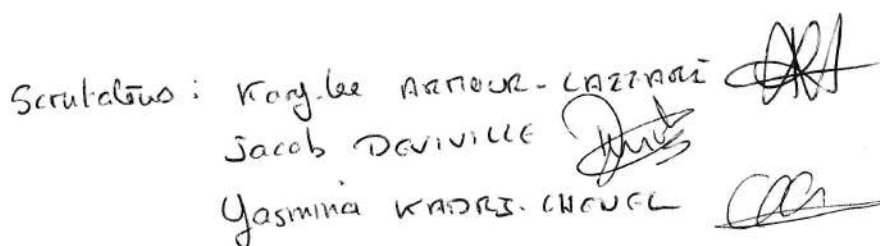 Scrutateurs : Kary-lee ARMOUR-LAZZARI
Jacob DEVIVILLE
Yasmina KADRI-CHENEL